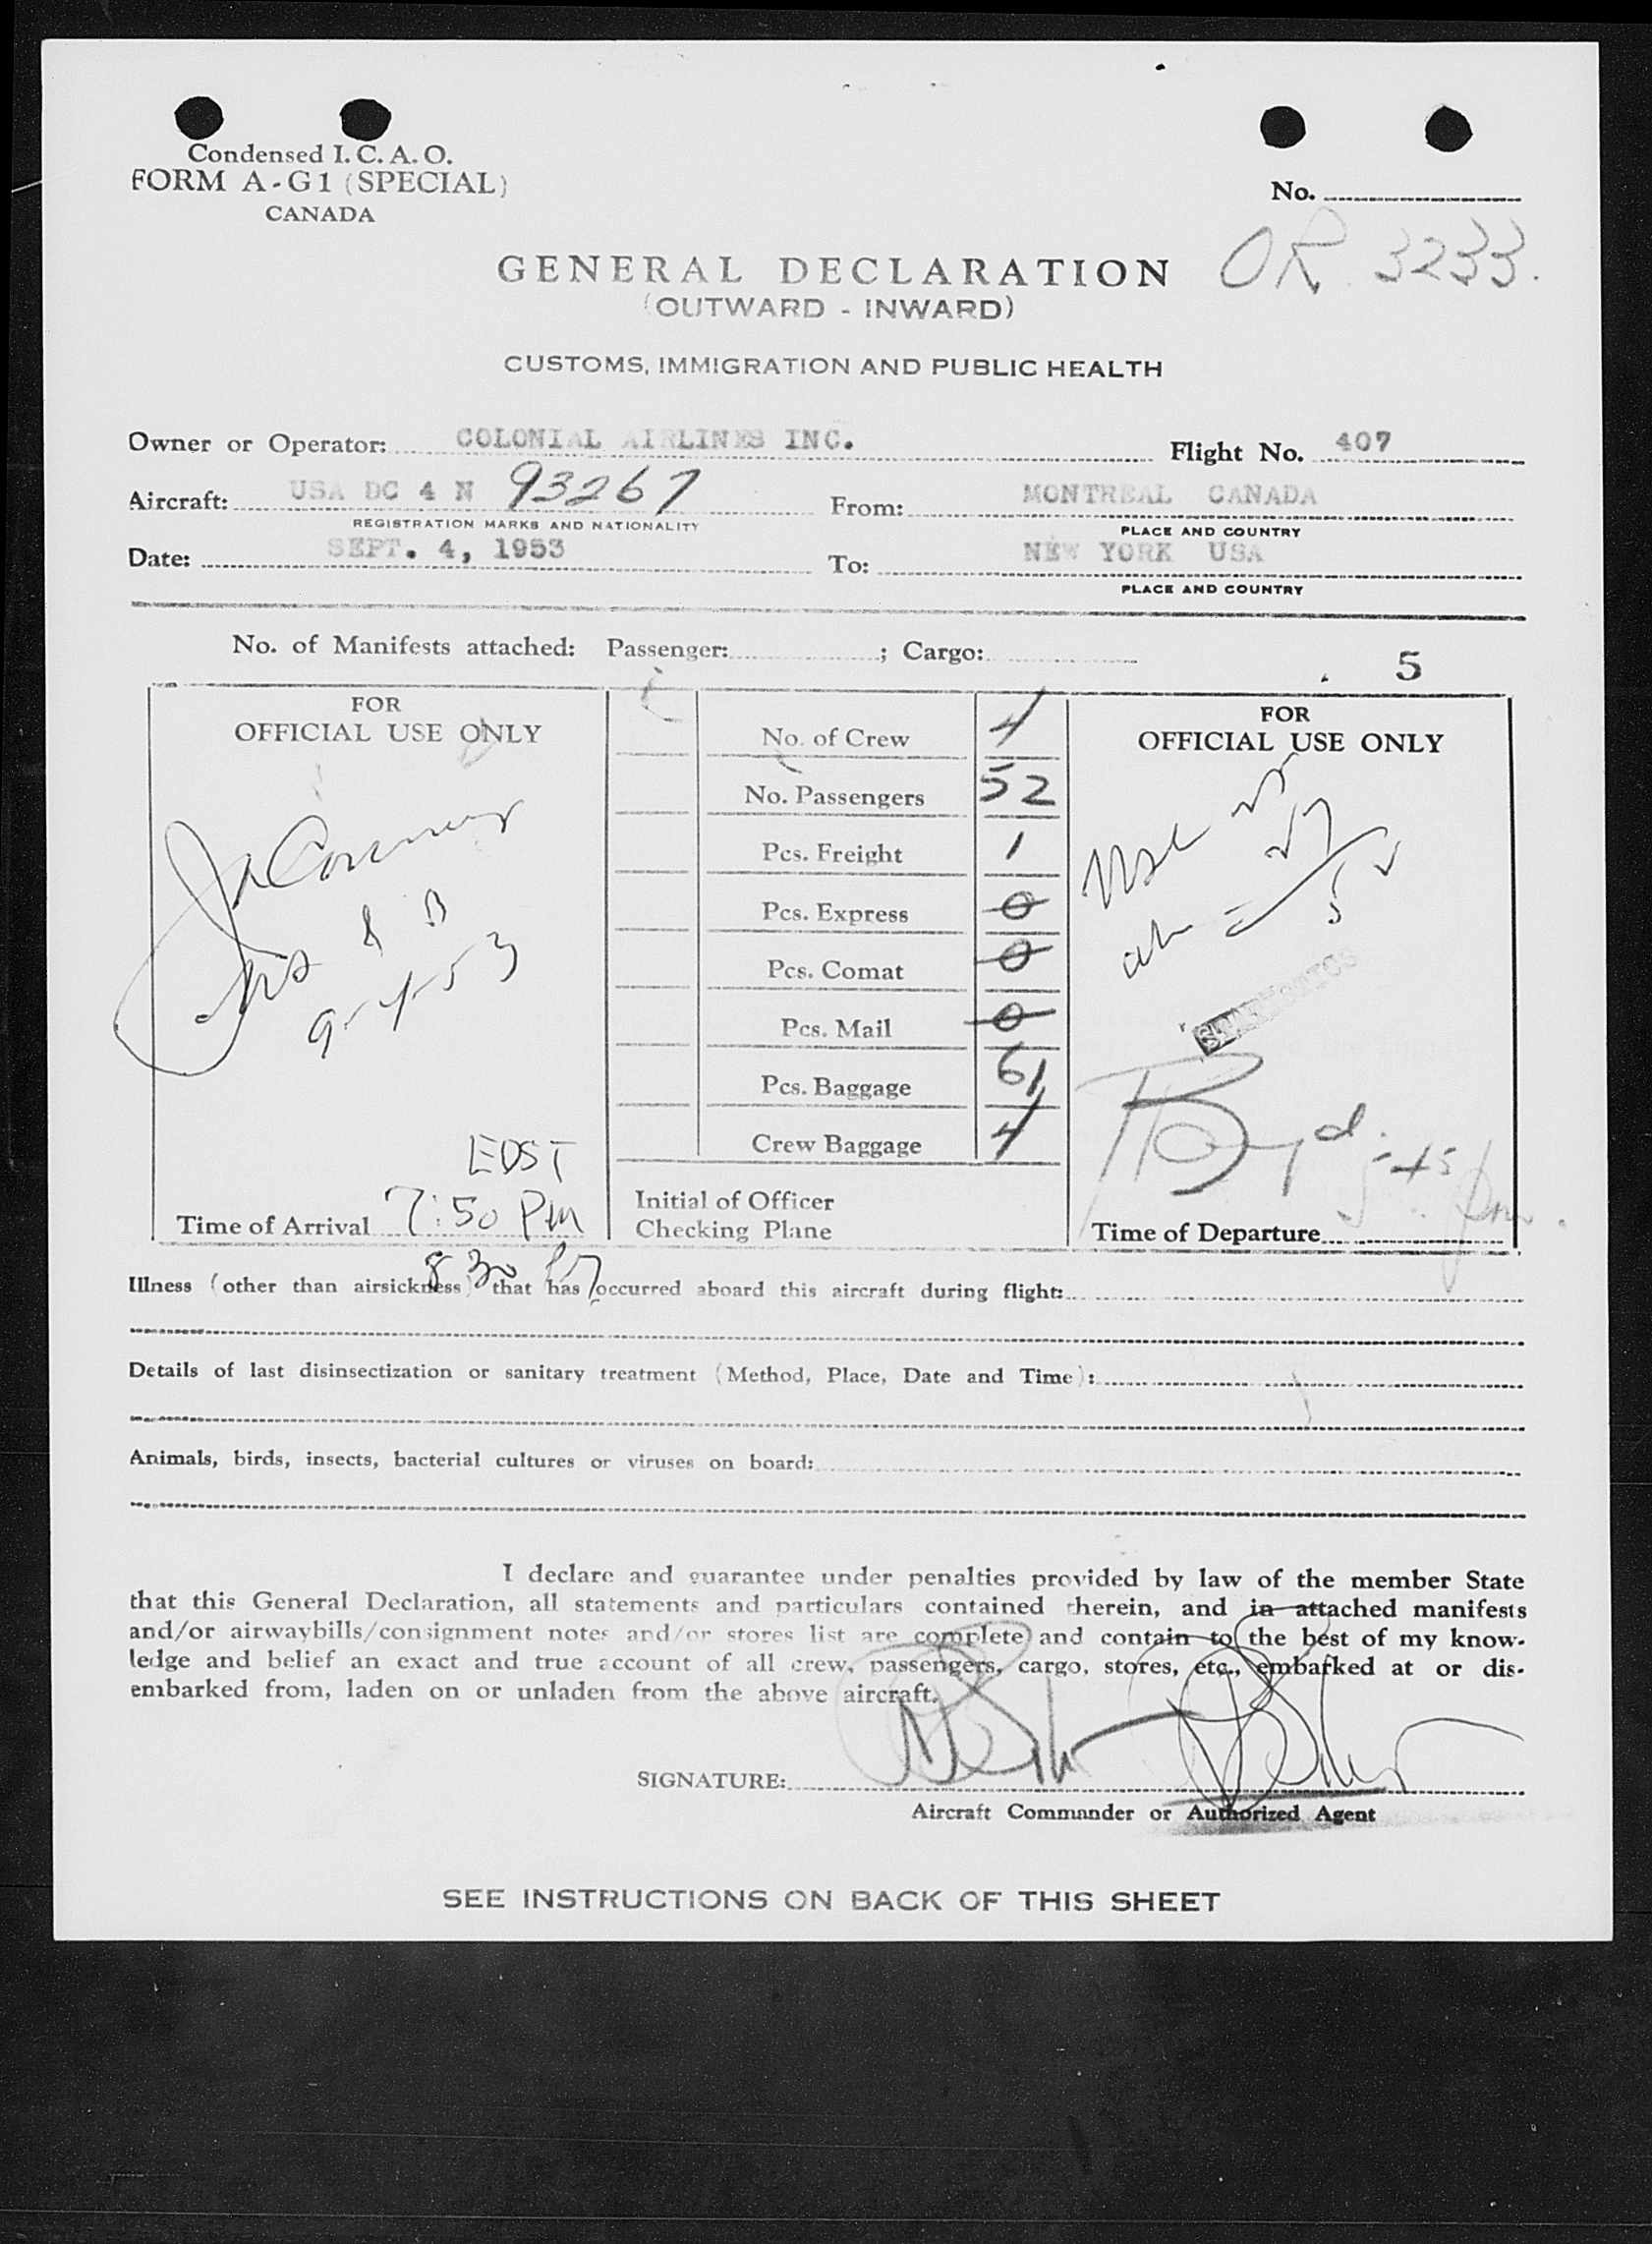 Condensed I. C. A. O.
FORM A-G1 (SPECIAL)
CANADA
No.
OR 3233.
GENERAL DECLARATION
(OUTWARD - INWARD)
CUSTOMS, IMMIGRATION AND PUBLIC HEALTH
Owner or Operator: COLONIAL AIRLINES INC. Flight No. 407
Aircraft: USA DC 4 N 93267 From: MONTREAL CANADA
REGISTRATION MARKS AND NATIONALITY PLACE AND COUNTRY
Date: SEPT. 4, 1953 To: NEW YORK USA
PLACE AND COUNTRY
No. of Manifests attached: Passenger: ; Cargo:
5
FOR
OFFICIAL USE ONLY
9-4-53
EDST
Time of Arrival 7:50 PM
8 30
No. of Crew 4
No. Passengers 52
Pcs. Freight 1
Pcs. Express 0
Pcs. Comat 0
Pcs. Mail 0
Pcs. Baggage 61
Crew Baggage 4
Initial of Officer
Checking Plane
FOR
OFFICIAL USE ONLY
Time of Departure 5-45 pm.
Illness (other than airsickness) that has occurred aboard this aircraft during flight:
Details of last disinsectization or sanitary treatment (Method, Place, Date and Time):
Animals, birds, insects, bacterial cultures or viruses on board:
I declare and guarantee under penalties provided by law of the member State
that this General Declaration, all statements and particulars contained therein, and in attached manifests
and/or airwaybills/consignment notes and/or stores list are complete and contain to the best of my know-
ledge and belief an exact and true account of all crew, passengers, cargo, stores, etc., embarked at or dis-
embarked from, laden on or unladen from the above aircraft.
SIGNATURE:
Aircraft Commander or Authorized Agent
SEE INSTRUCTIONS ON BACK OF THIS SHEET